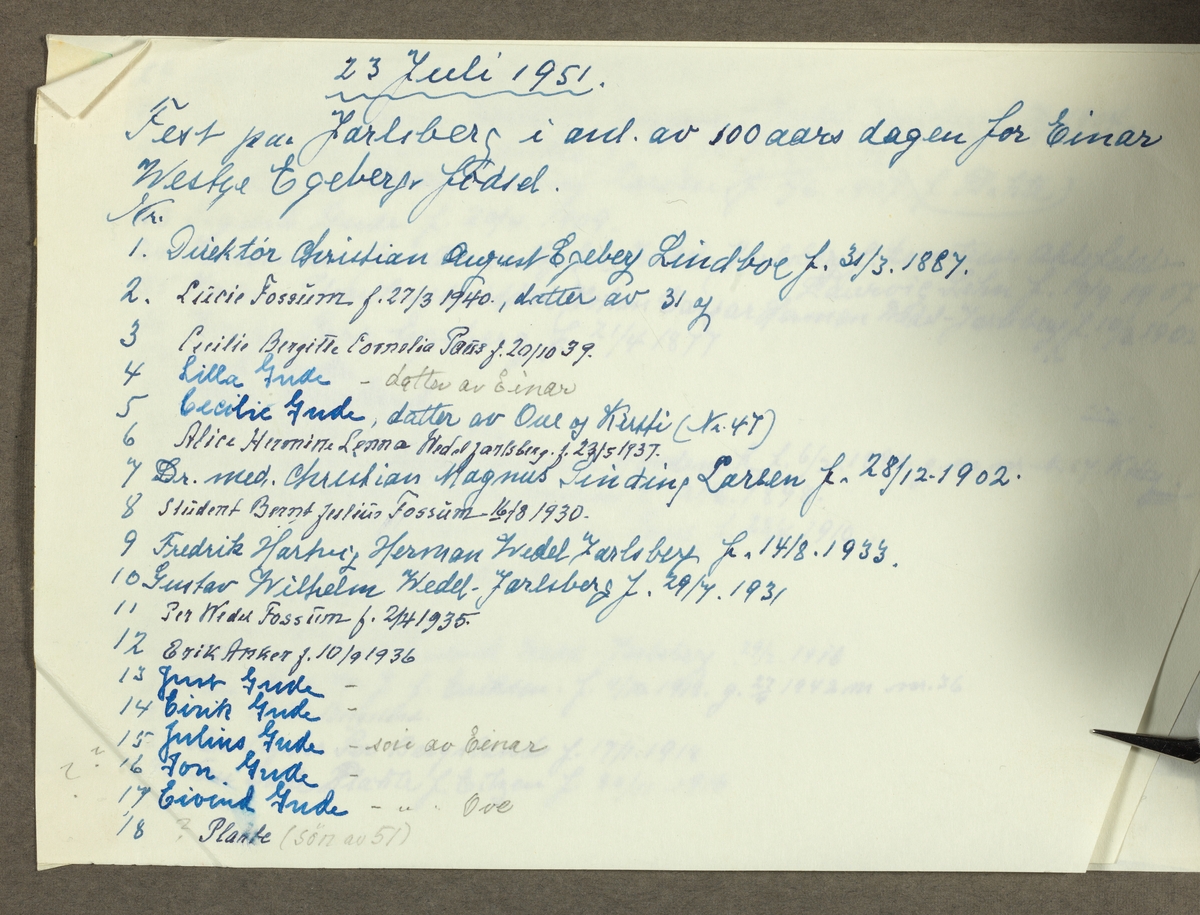 23 Juli 1951.
Fest paa Jarlsberg i anl. av 100 aars dagen for Einar
Westye Egebergs födsel.
Nr.
1. Direktör Christian August Egeberg Lindboe f. 31/3. 1887.
2. Lucie Fossum f. 27/3 1940., datter av 31 og
3 Cecilie Bergitte Cornelia Paus f. 20/10 39.
4 Lilla Gude - datter av Einar
5 Cecilie Gude, datter av Ove og Kirsti (Nr. 47)
6 Alice Hermine Lenna Wedel Jarlsberg. f. 23/5 1937.
7 Dr. med. Christian Magnus Sinding Larsen f. 28/12-1902.
8 Student Bernt Julius Fossum 16/8 1930-
9 Fredrik Hartvig Herman Wedel Jarlsberg f. 14/8. 1933.
10 Gustav Wilhelm Wedel-Jarlsberg f. 29/7. 1931
11 Per Wedel Fossum f. 2/4 1935-
12 Erik Anker f. 10/9 1936
13 Just Gude -
14 Eirik Gude -
15 Julius Gude - sön av Einar
? 16 Jon. Gude -
17 Eivind Gude - " - Ove
18 ? Plahte (sön av 51)